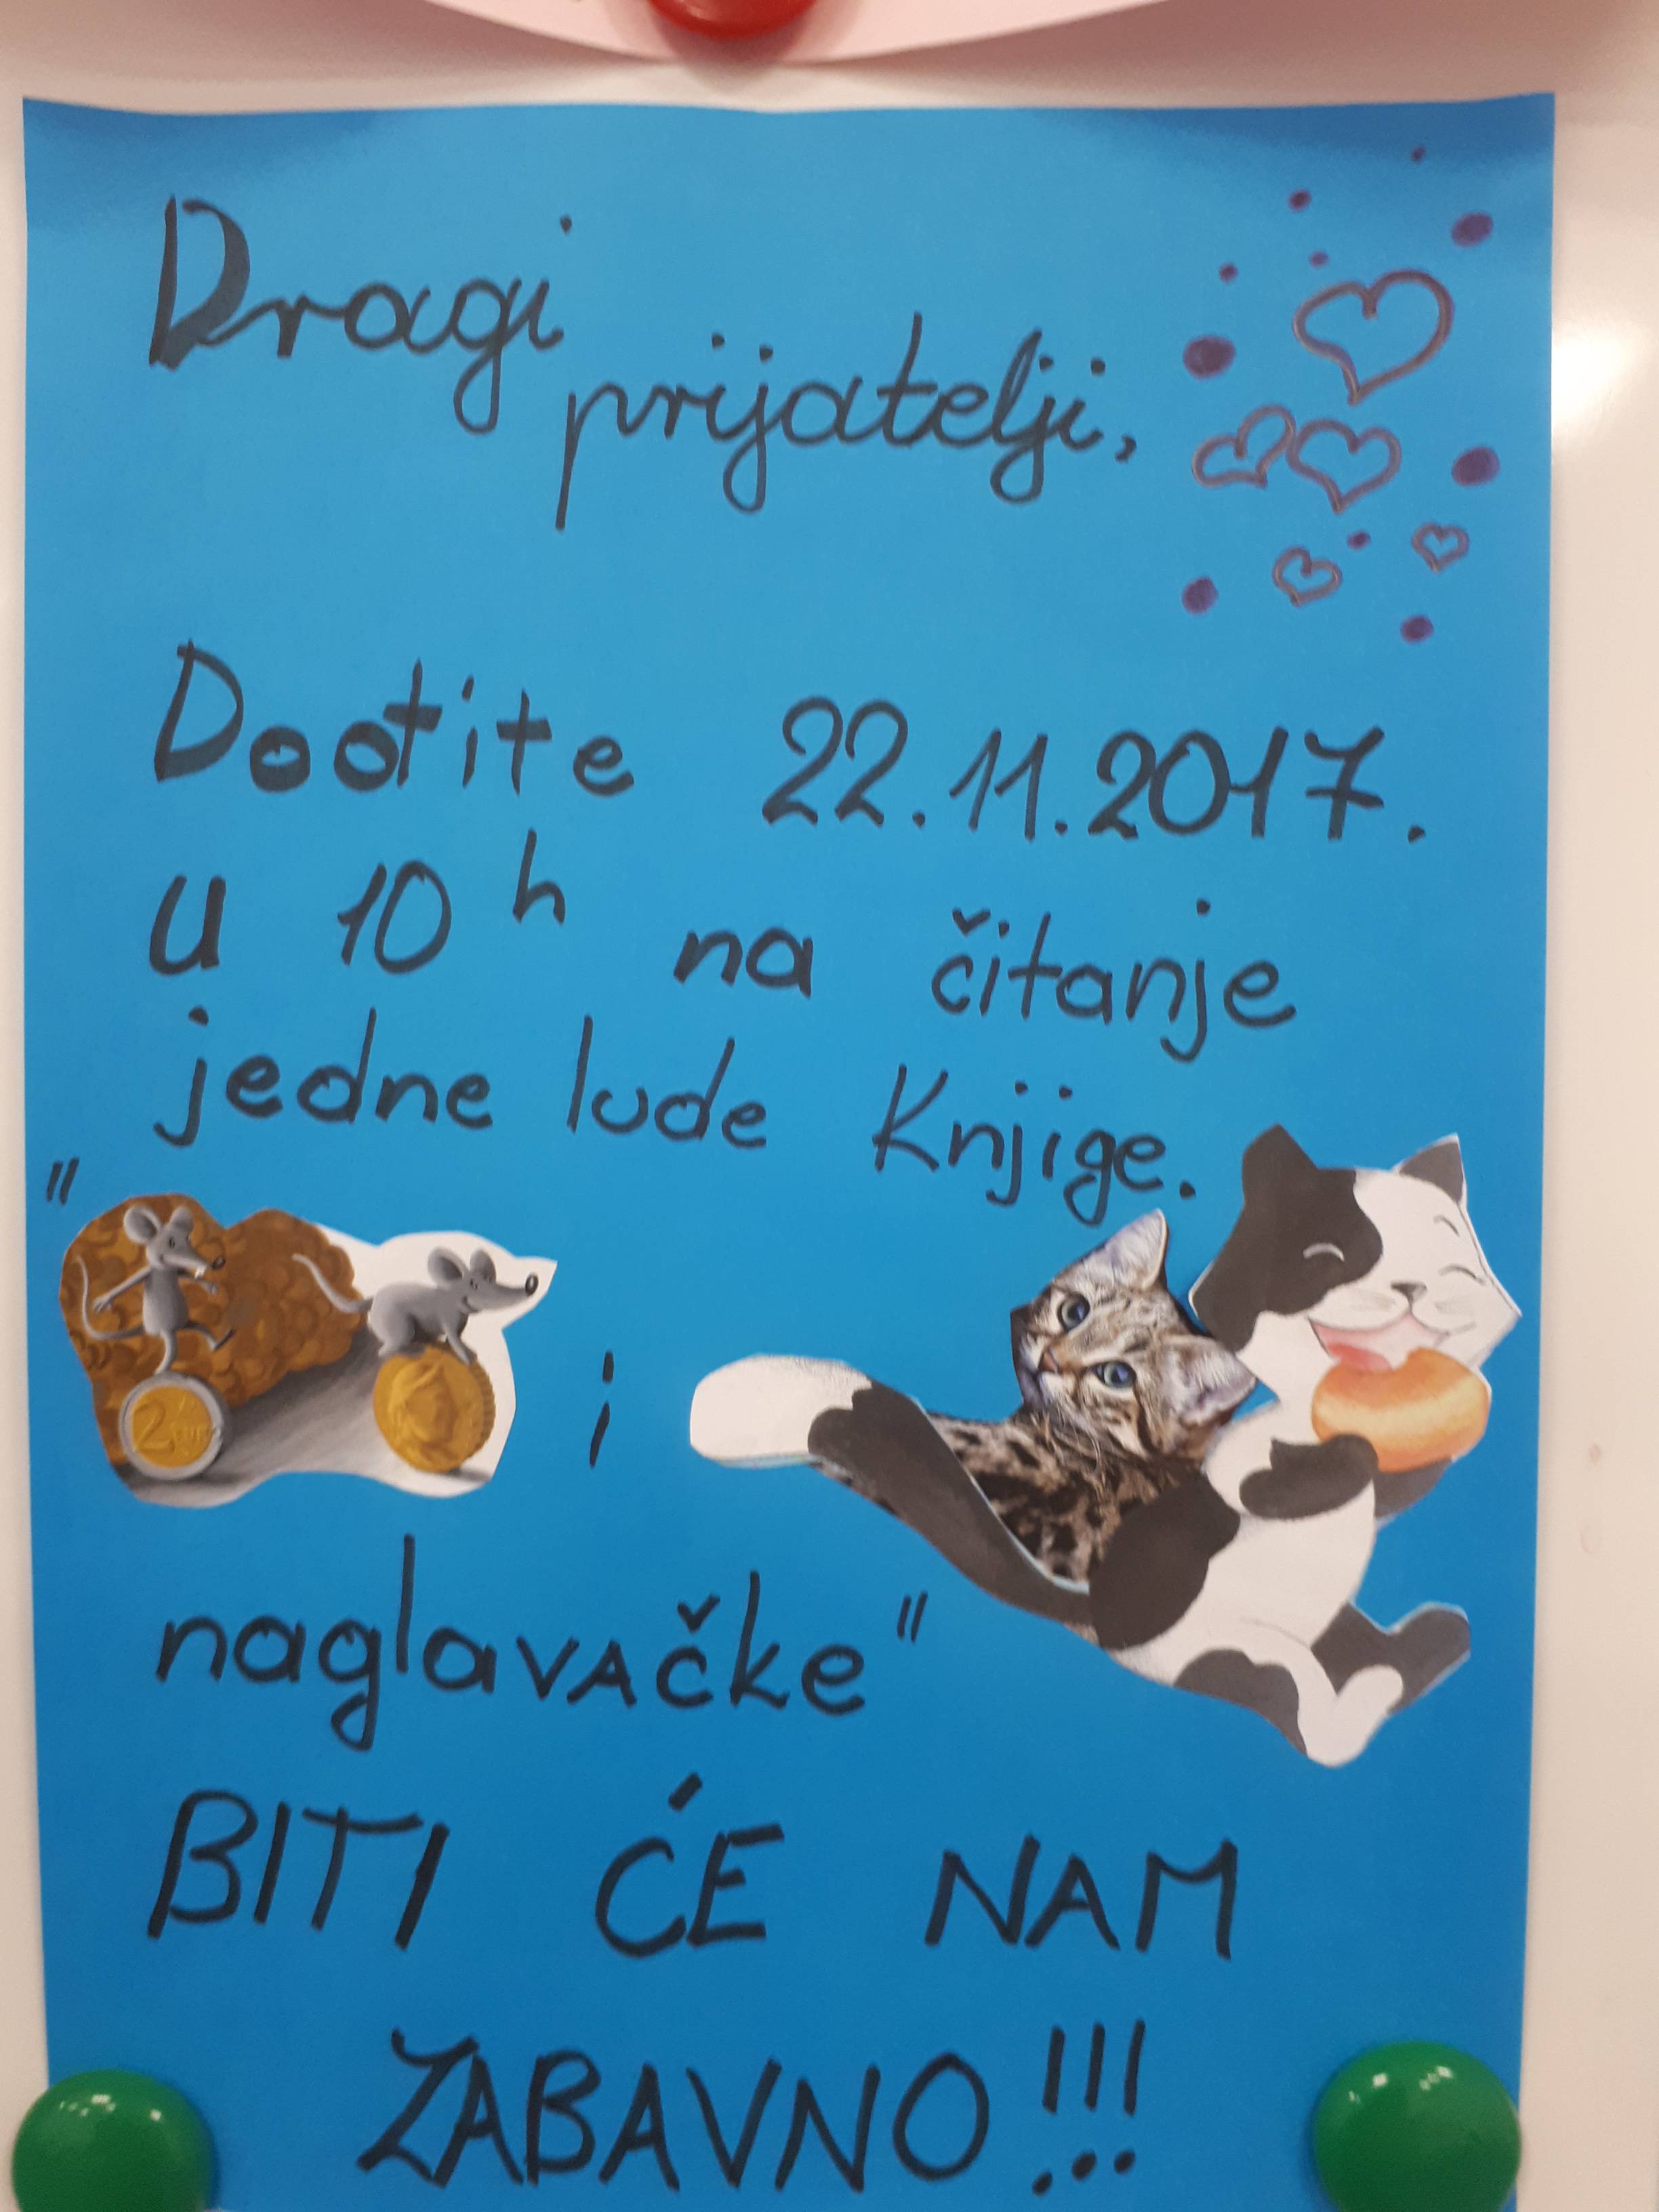 Dragi
prijatelji,
Dođite 22.11.2017.
u 10h na čitanje
jedne lude knjige.
"
2 EURO
i
naglavačke"
BITI ĆE NAM
ZABAVNO!!!